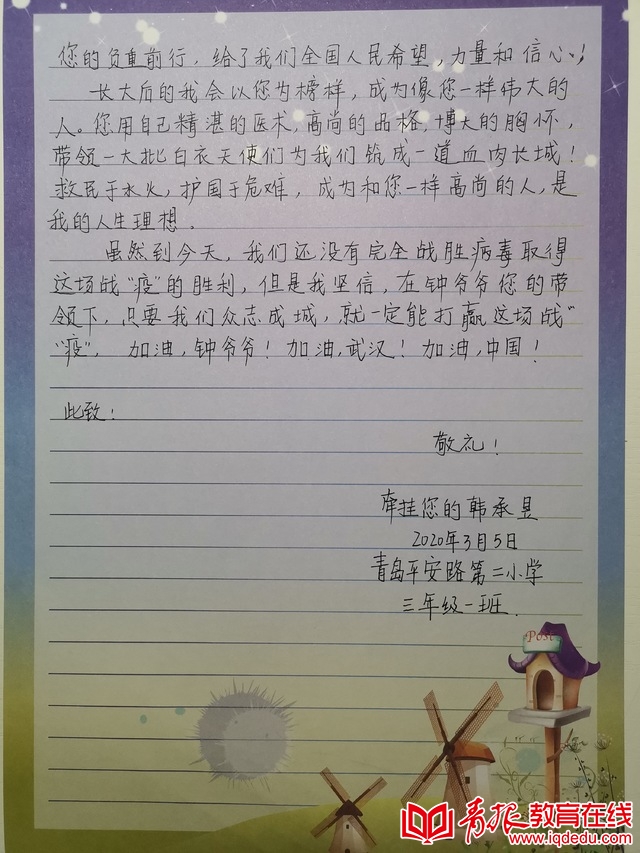 您的负重前行，给了我们全国人民希望，力量和信心！
长大后的我会以您为榜样，成为像您一样伟大的
人。您用自己精湛的医术，高尚的品格，博大的胸怀，
带领一大批白衣天使们为我们筑成一道血肉长城！
救民于水火，护国于危难，成为和您一样高尚的人，是
我的人生理想。
虽然到今天，我们还没有完全战胜病毒取得
这场战“疫”的胜利，但是我坚信，在钟爷爷您的带
领下，只要我们众志成城，就一定能打赢这场战“
“疫”，加油，钟爷爷！加油，武汉！加油，中国！
此致！
敬礼！
牵挂您的韩承昱
2020年3月5日
青岛平安路第二小学
三年级一班
Post
青报教育在线
www.iqdedu.com